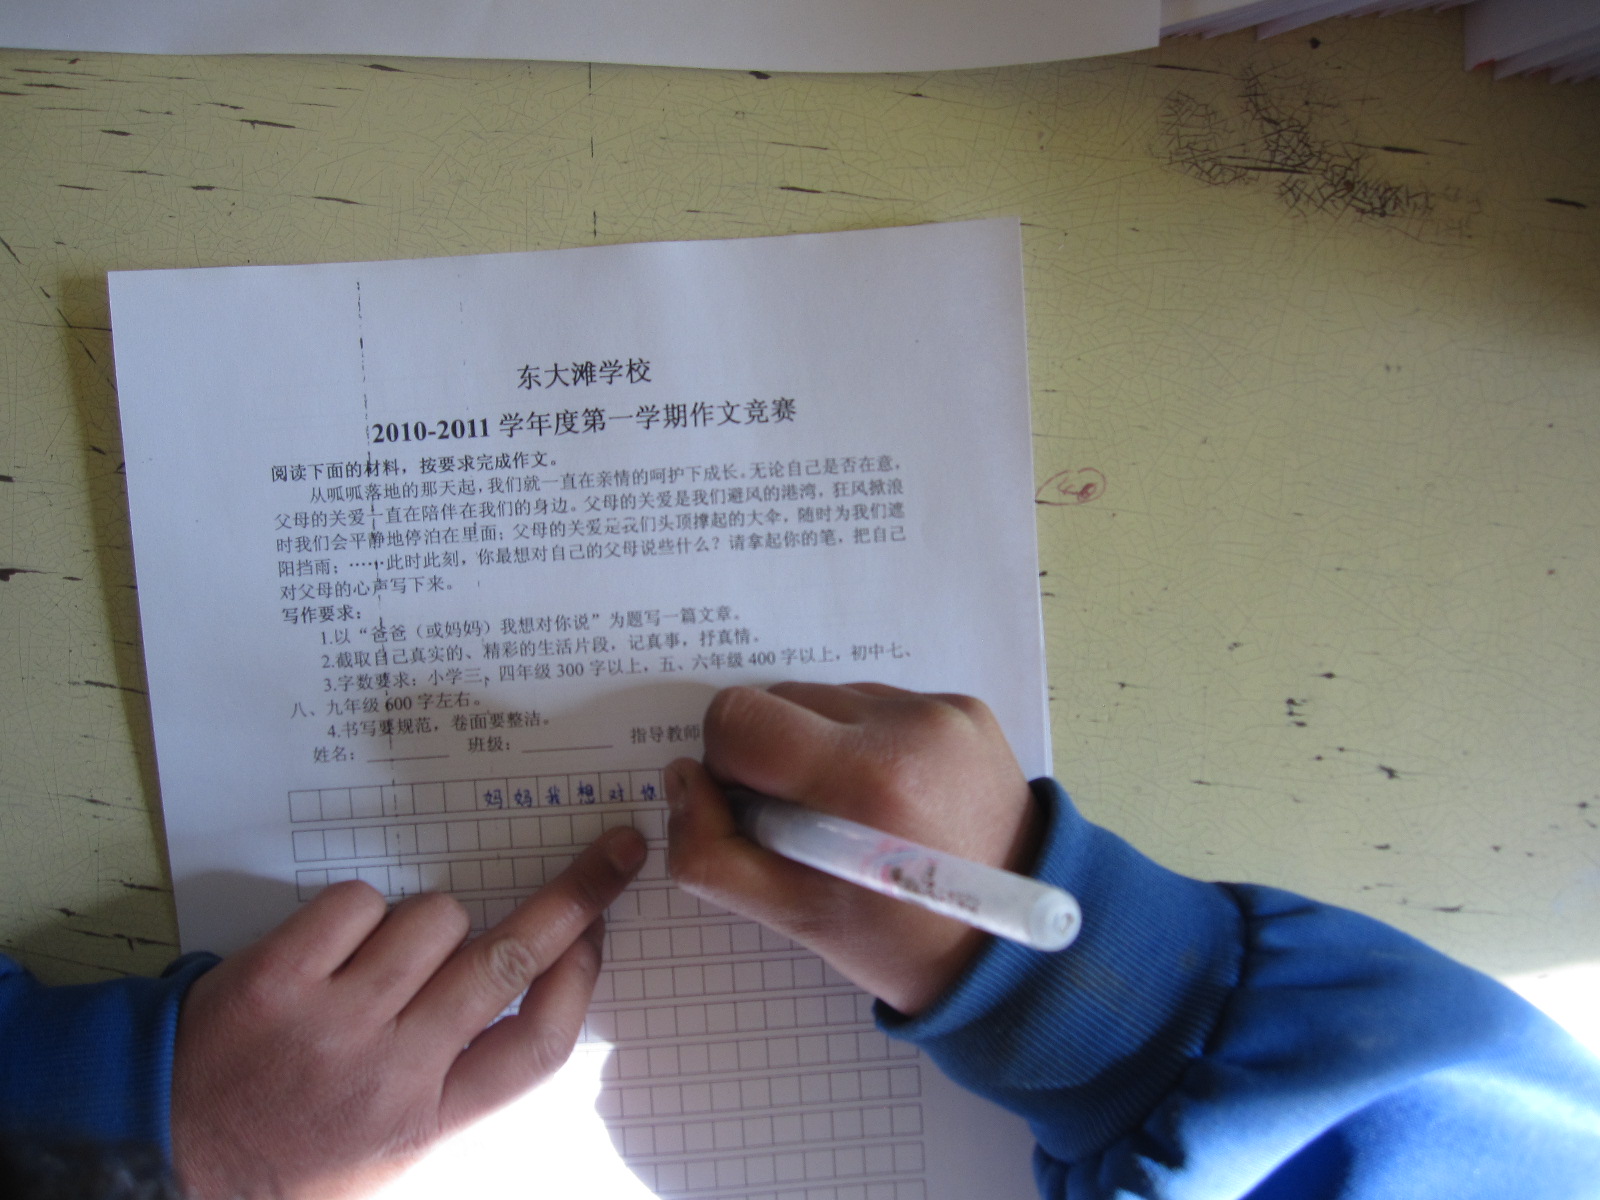 东大滩学校
2010-2011 学年度第一学期作文竞赛
阅读下面的材料，按要求完成作文。
从呱呱落地的那天起，我们就一直在亲情的呵护下成长。无论自己是否在意，
父母的关爱一直在陪伴在我们的身边。父母的关爱是我们避风的港湾，狂风掀浪
时我们会平静地停泊在里面；父母的关爱是我们头顶撑起的大伞，随时为我们遮
阳挡雨；……此时此刻，你最想对自己的父母说些什么？请拿起你的笔，把自己
对父母的心声写下来。
写作要求：
1.以“爸爸（或妈妈）我想对你说”为题写一篇文章。
2.截取自己真实的、精彩的生活片段，记真事，抒真情。
3.字数要求：小学三，四年级 300 字以上，五、六年级 400 字以上，初中七、
八、九年级 600 字左右。
4.书写要规范，卷面要整洁。
姓名：________ 班级：________ 指导教师
妈妈我想对你